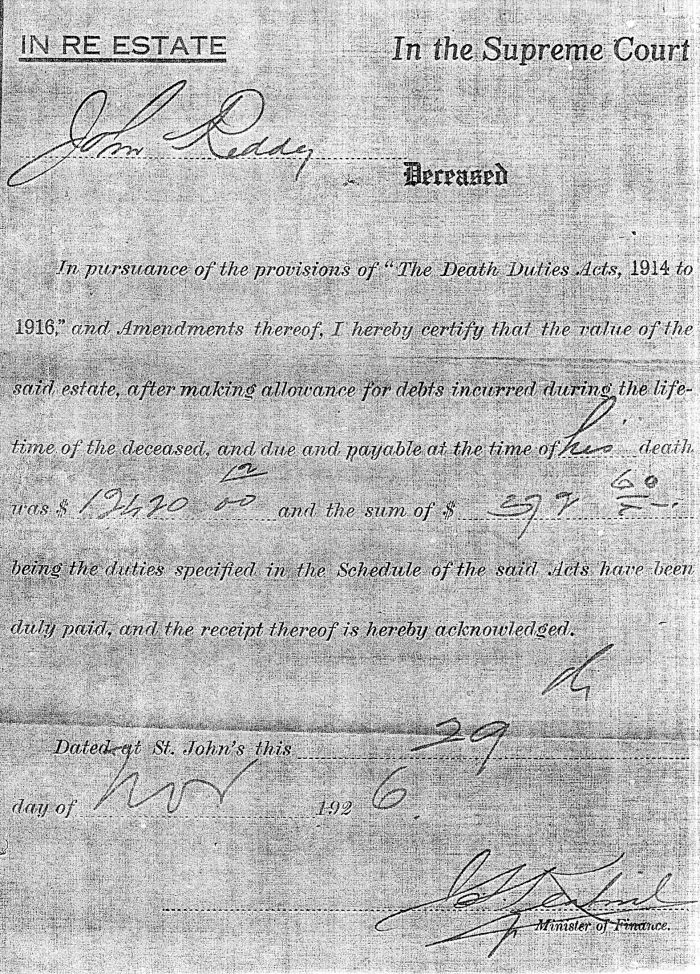 IN RE ESTATE In the Supreme Court
John Reddy
Deceased
In pursuance of the provisions of "The Death Duties Acts, 1914 to
1916," and Amendments thereof, I hereby certify that the value of the
said estate, after making allowance for debts incurred during the life-
time of the deceased, and due and payable at the time of his death
was $ 12420 and the sum of $ 372 60
being the duties specified in the Schedule of the said Acts have been
duly paid, and the receipt thereof is hereby acknowledged.
Dated at St. John's this 29
day of Nov 1926
Minister of Finance.